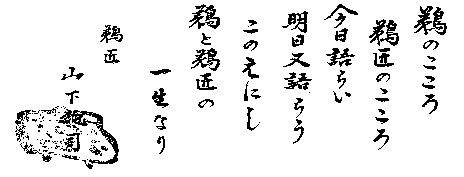 鵜のこころ
鵜匠のこころ
今日語らい
明日又語らう
このえにし
鵜と鵜匠の
一生なり
鵜匠
山下